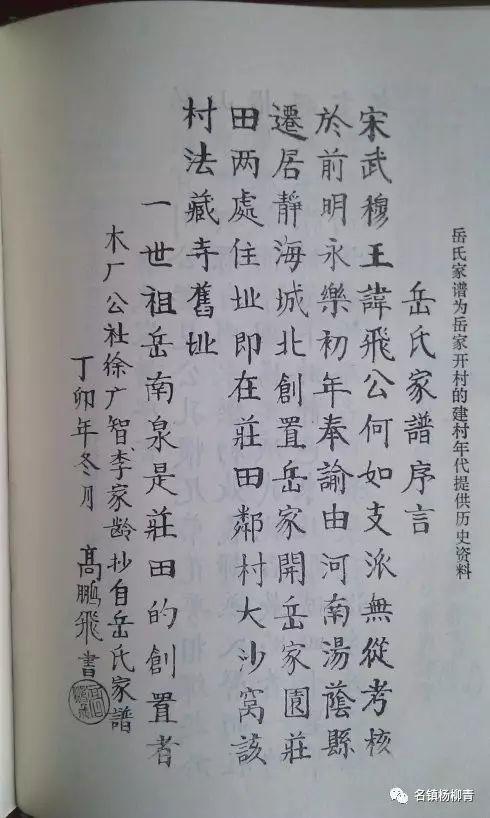 岳氏家谱为岳家开村的建村年代提供历史资料
岳氏家譜序言
宋武穆王諱飛公何如支派無從考核
於前明永樂初年奉諭由河南湯蔭縣
遷居靜海城北創置岳家開岳家園莊
田两處住址即在莊田鄰村大沙窩該
村法藏寺舊址
一世祖岳南泉是莊田的創置者
木厂公社徐广智李家龄抄自岳氏家譜
丁卯年冬月 高鵬飛書
名镇杨柳青